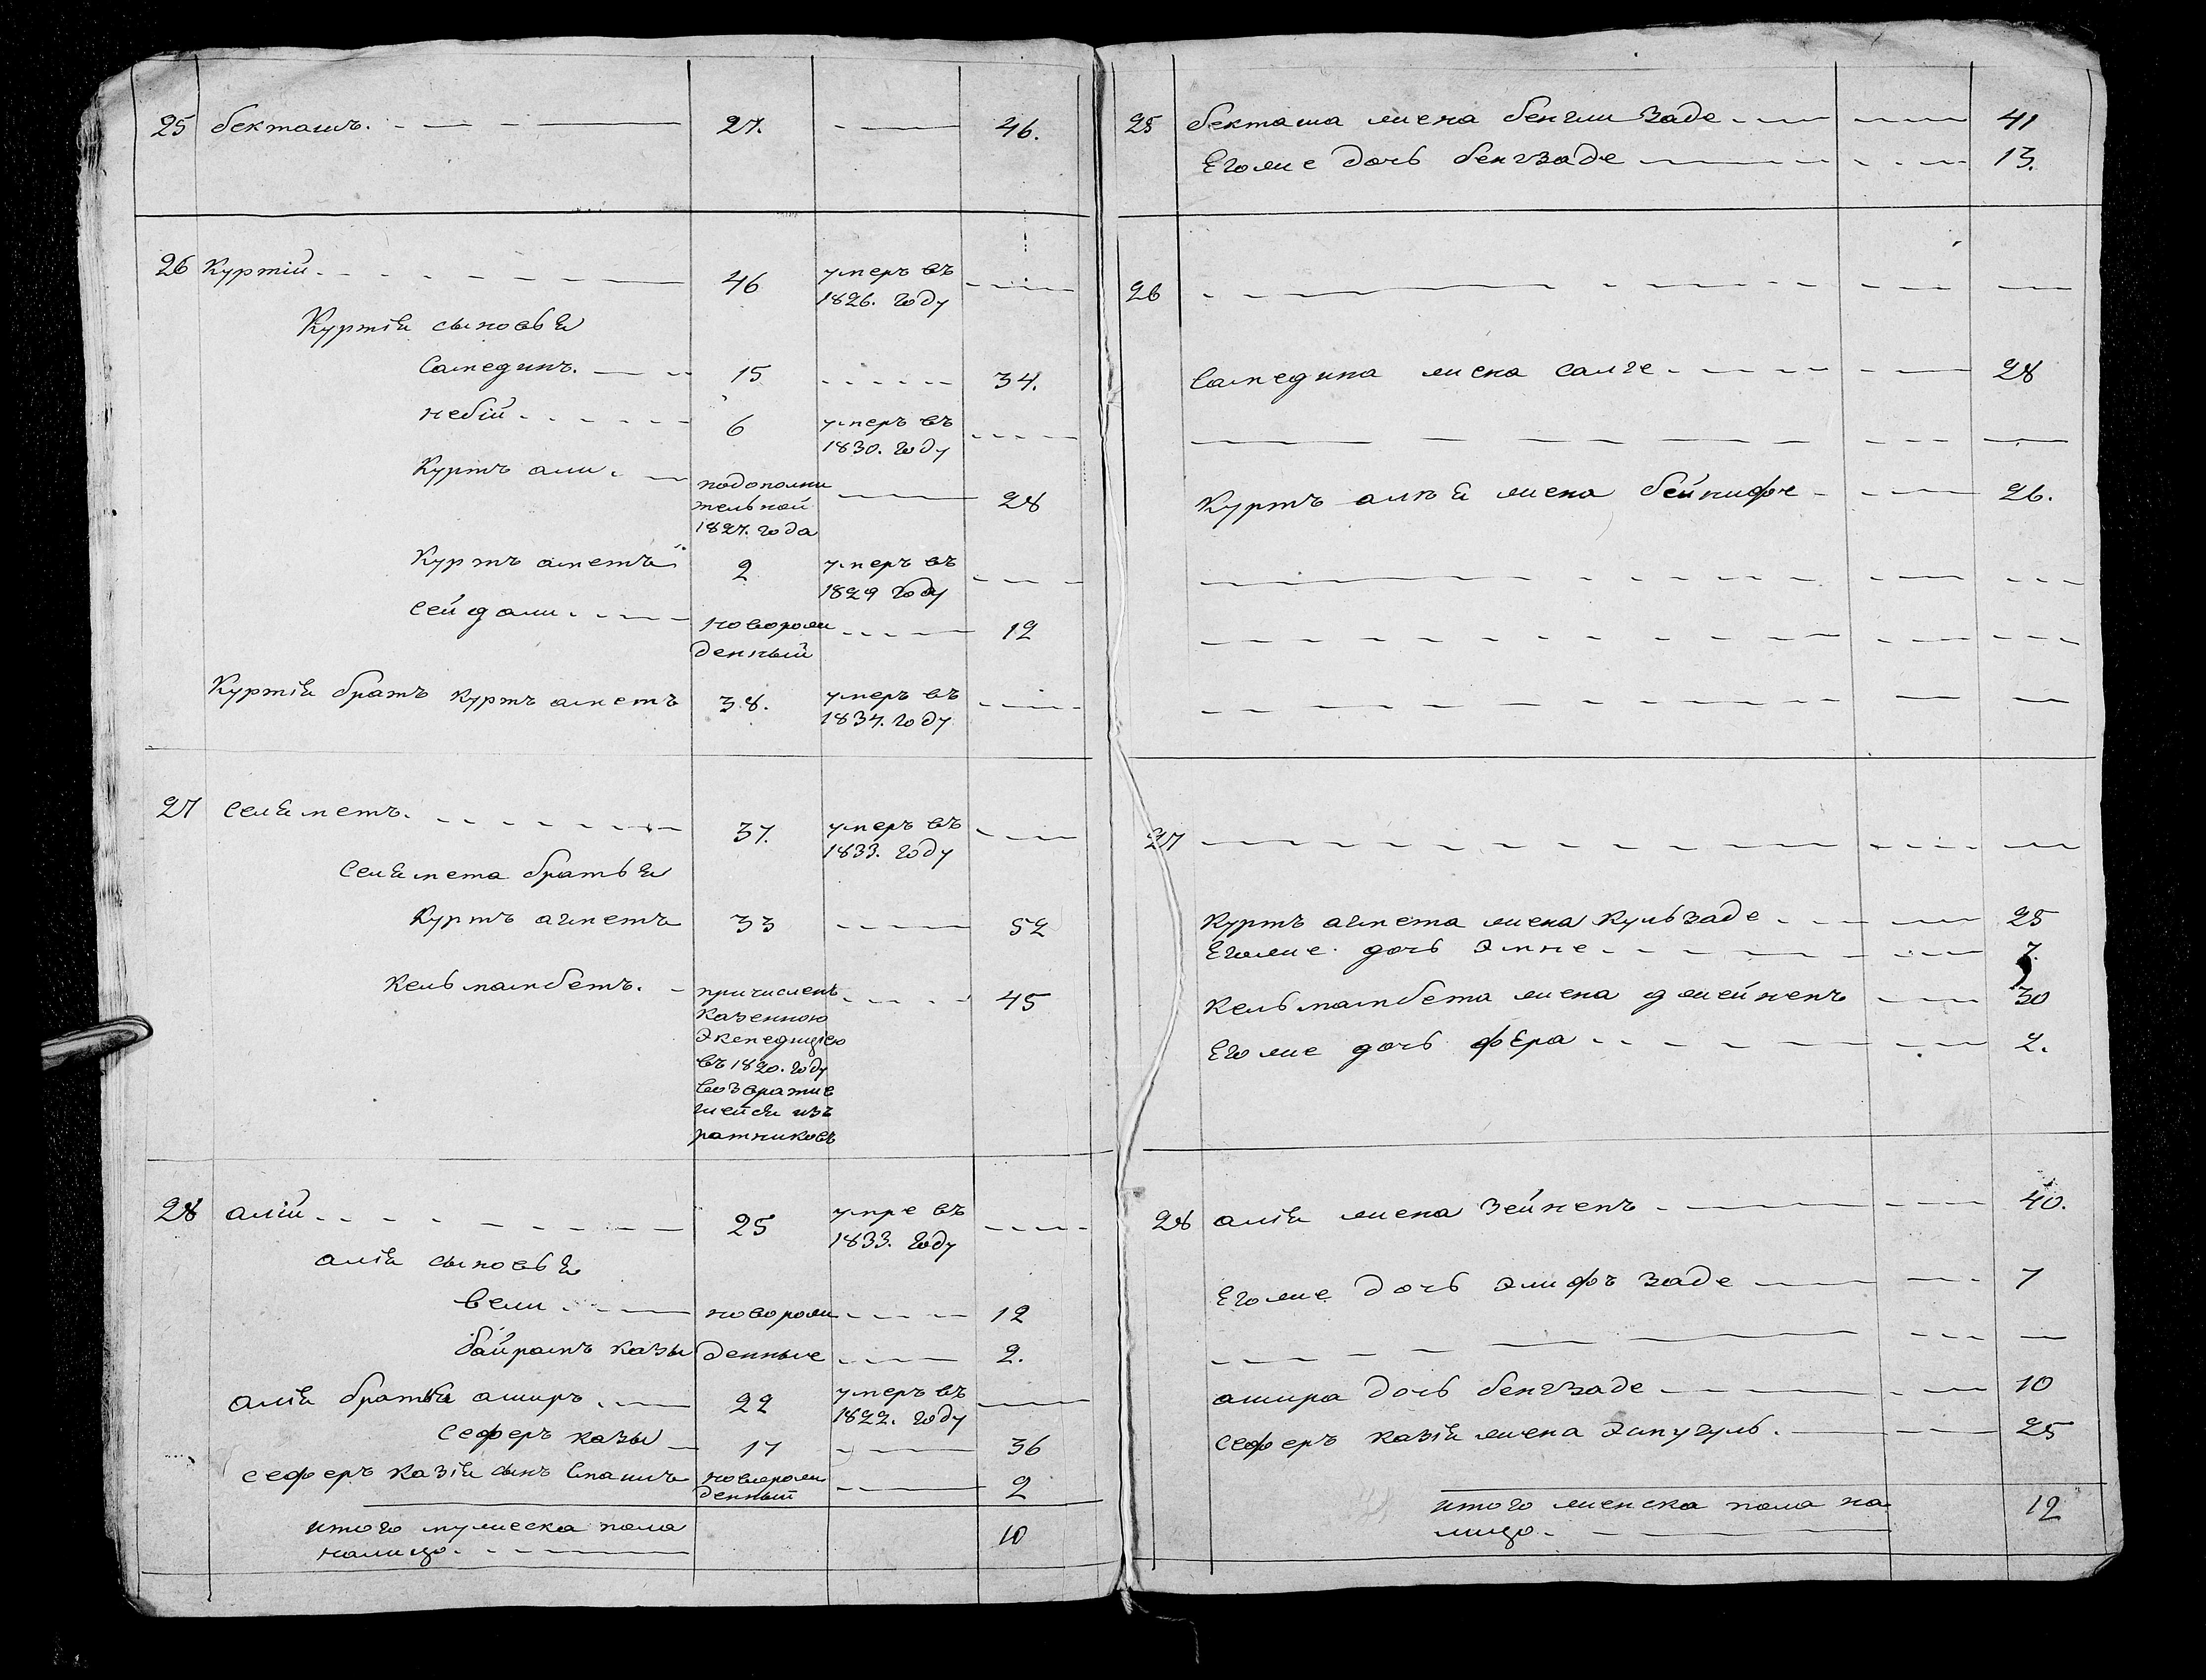 25 бекташъ. 27. 46.
26 Куртїй 46 умеръ въ
1826. году
Куртїя сыновья
Самединъ. 15 34.
небїй 6 умеръ въ
1830. году
Куртъ али. подополни
тельной 28
1827. года
Куртъ аметъ 2 умеръ въ
1829 году
Сейдали новорож 12
денный
Куртїя братъ куртъ аметъ 38. умеръ въ
1834. году
27 Селяметъ. 37. умеръ въ
1833. году
Селямета братья
Куртъ агметъ 33 52
Кельмамбетъ. причисленъ 45
Казенною
Экспедицїею
въ 1820. году
возвратив
шейся изъ
ратниковъ
28 алїй 25 умре въ
1833. году
алїя сыновья
Вели новорож 12
байрамъ казы денные 2.
алїя братья аширъ 22 умеръ въ
1822. году
Сеферъ казы 17 36
сеферъ казїя сынъ новорож 2
денный
итого мужеска пола 10
налицо.
25 бекташа жена бенгли заде 41
Его же дочь бенгзаде 13.
26
Самедина жена салге 28
Куртъ алія жена бейнифе 26.
27
Куртъ агмета жена Кульзаде 25
Его же дочь Эмне 7.
Кельмамбета жена джейнепъ 30
Его же дочь фера 2.
28 алїя жена зейнепъ 40.
Его же дочь Элифъ заде 7
ашира дочь бенгзаде 10
сеферъ казїя жена 25
итого женска пола на 12
лицо.